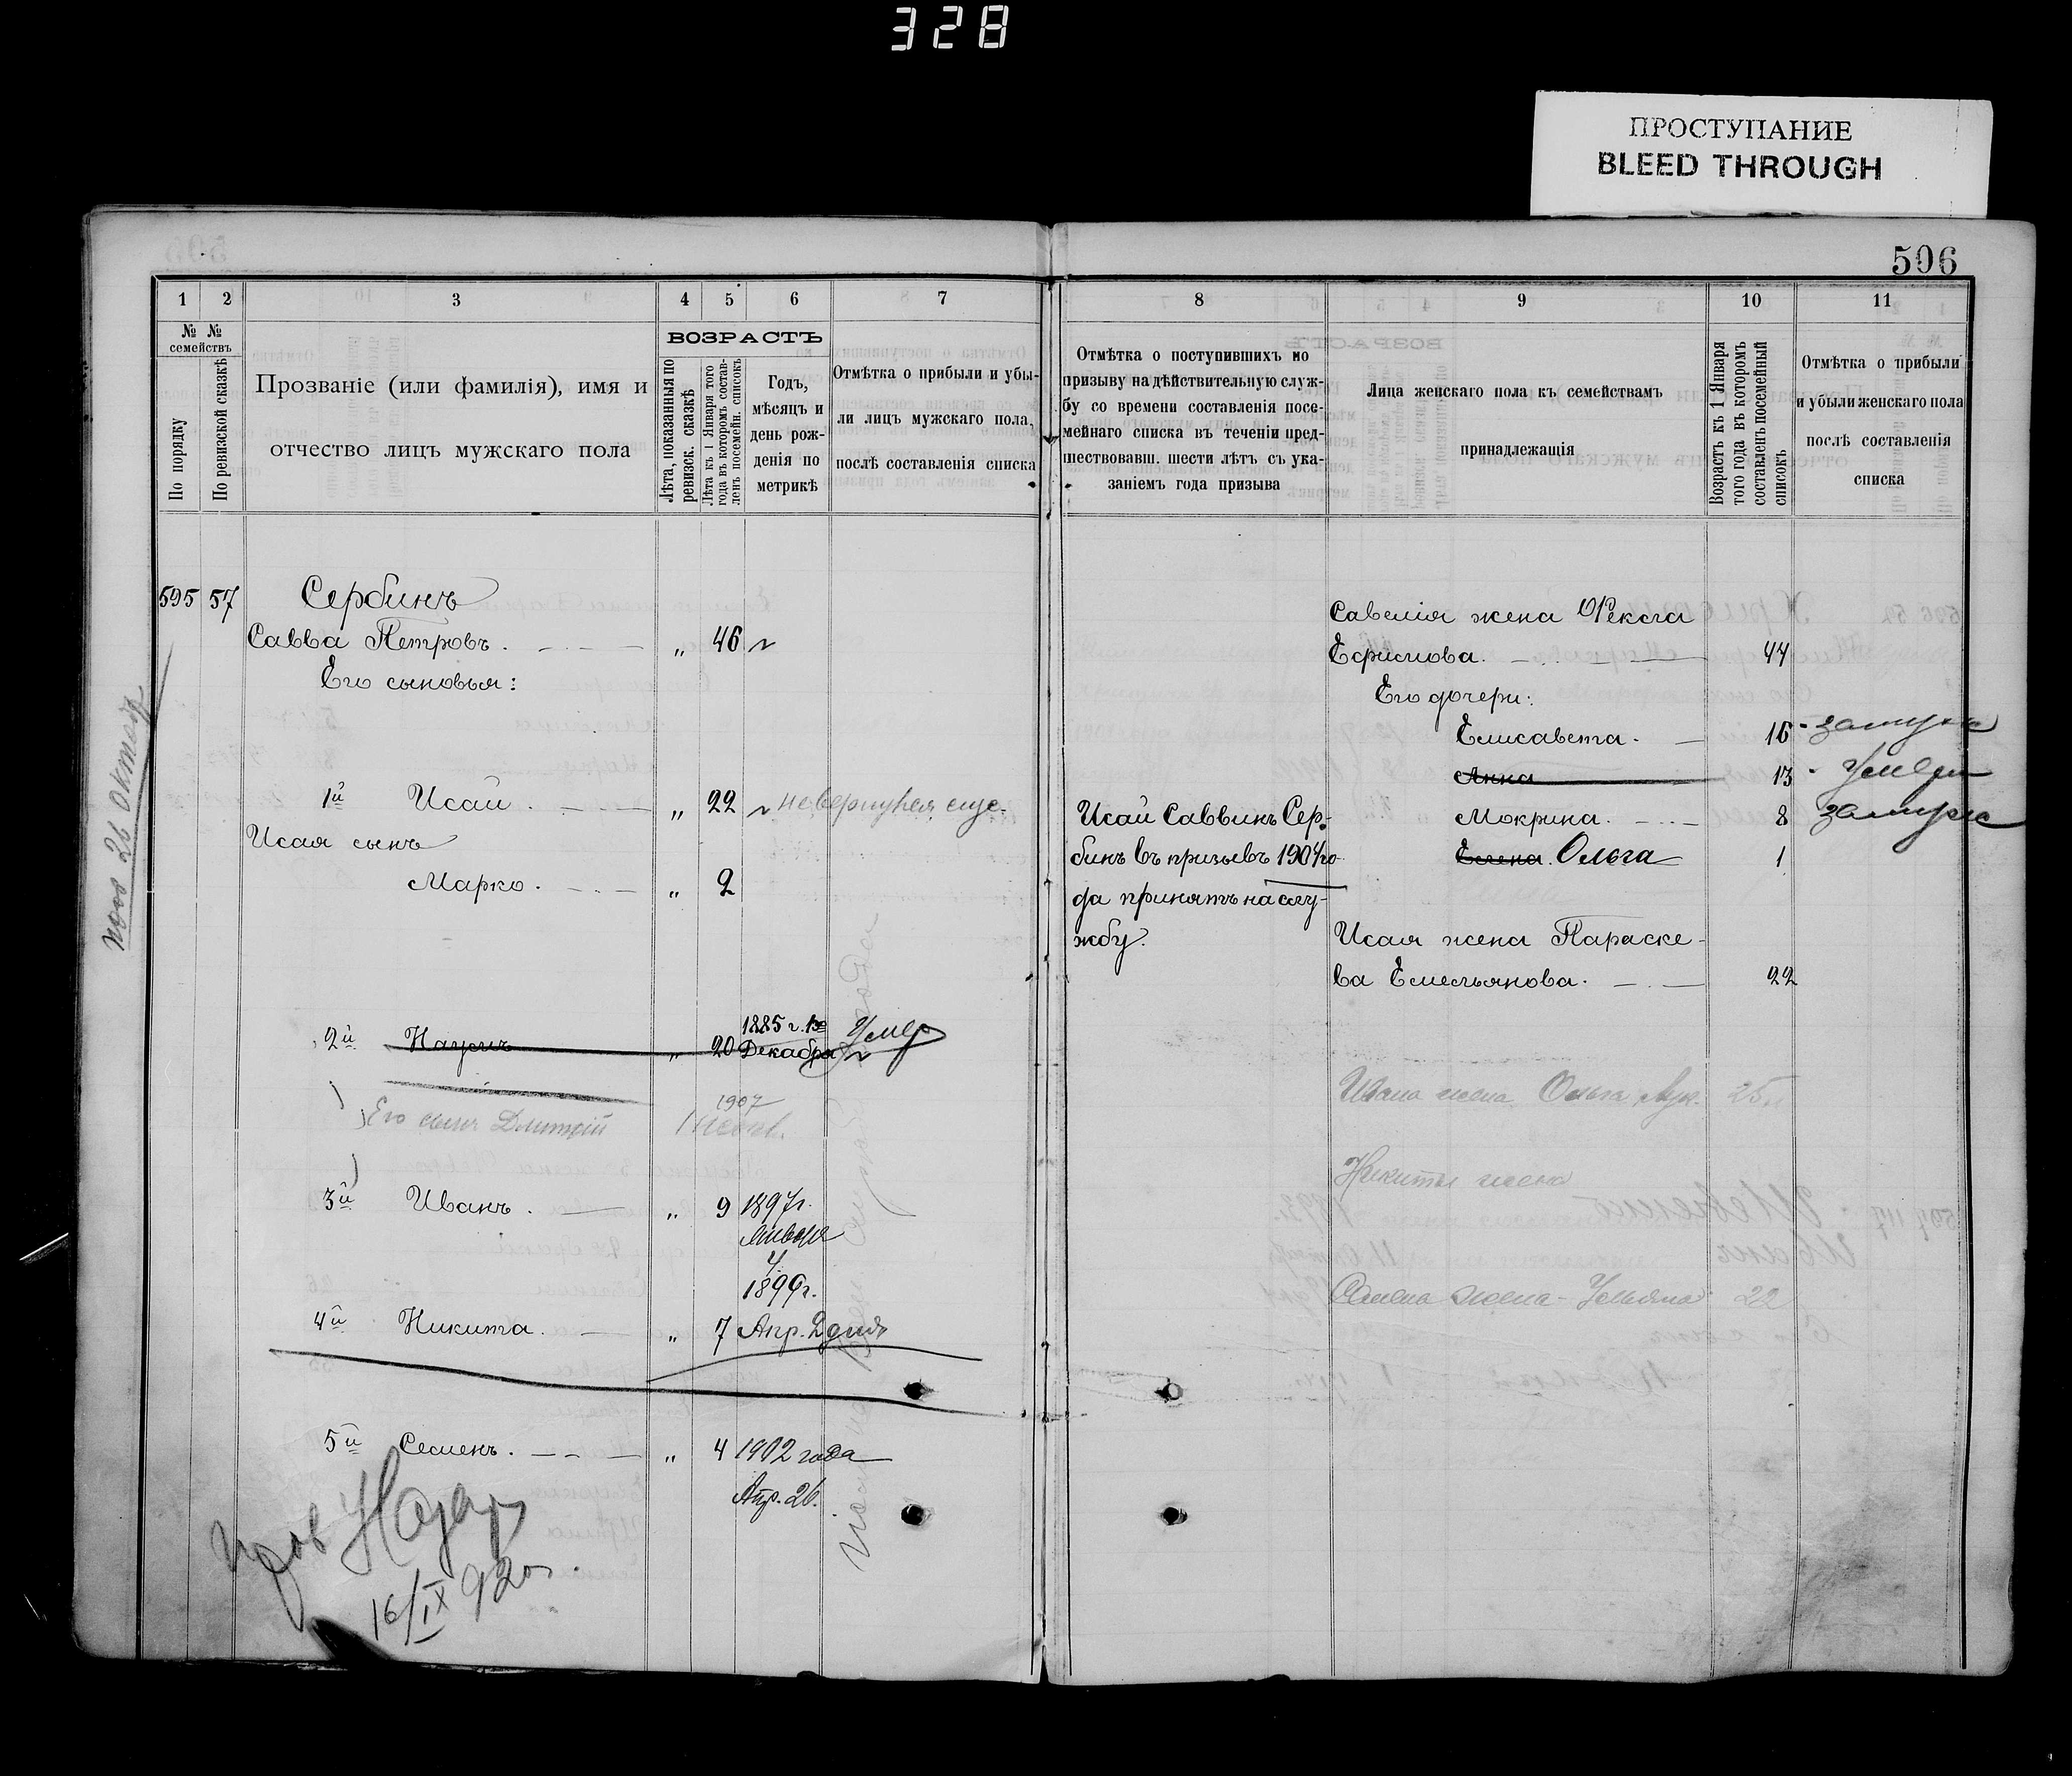 328
ПРОСТУПАНИЕ
BLEED THROUGH
506
1 2 3 4 5 6 7
№ № семействъ
По порядку
По ревизской сказкѣ
Прозваніе (или фамилія), имя и
отчество лицъ мужскаго пола
ВОЗРАСТЪ
Лѣта, показанныя по
ревизск. сказкѣ
Лѣта къ 1 Января того
года въ которомъ состав-
ленъ посемейн. списокъ
Годъ,
мѣсяцъ и
день рож-
денія по
метрикѣ
Отмѣтка о прибыли и убы-
ли лицъ мужскаго пола,
послѣ составленія списка
8 9 10 11
Отмѣтка о поступившихъ по
призыву на дѣйствительную служ-
бу со времени составленія посе-
мейнаго списка въ теченіи пред-
шествовавш. шести лѣтъ съ ука-
заніемъ года призыва
Лица женскаго пола къ семействамъ
принадлежащія
Возрастъ къ 1 Января
того года въ которомъ
составленъ посемейный
списокъ
Отмѣтка о прибыли
и убыли женскаго пола
послѣ составленія
списка
595 57 Сербинъ
Савва Петровъ. „ 46
Его сыновья:
1й Исай. „ 22 невернулся
Исая сынъ
Марко. „ 2
2й Наумъ „ 20 1885 г.
Декабря Умер
Его сынъ Дмитрій 1907
3й Иванъ. „ 9 1897г.
Января
4
1899г.
4й Никита. „ 7 Апр. 2 дня
5й Семенъ. „ 4 1902 года
Апр. 26.
16/IX 920
26 Октяб
Исай Саввинъ Сер-
бинъ въ призывъ 1904 го-
да принятъ на слу-
жбу.
Савелія жена Фекла
Ефимова. 44
Его дочери:
Елисавета. 16 замуж
Анна 13 Умерла
Мокрина. 8 замуж
Елена. Ольга 1
Исая жена Параске-
ва Емельянова. 22
Ивана жена Ольга 25
Никиты жена
Семена жена - Ульяна 22